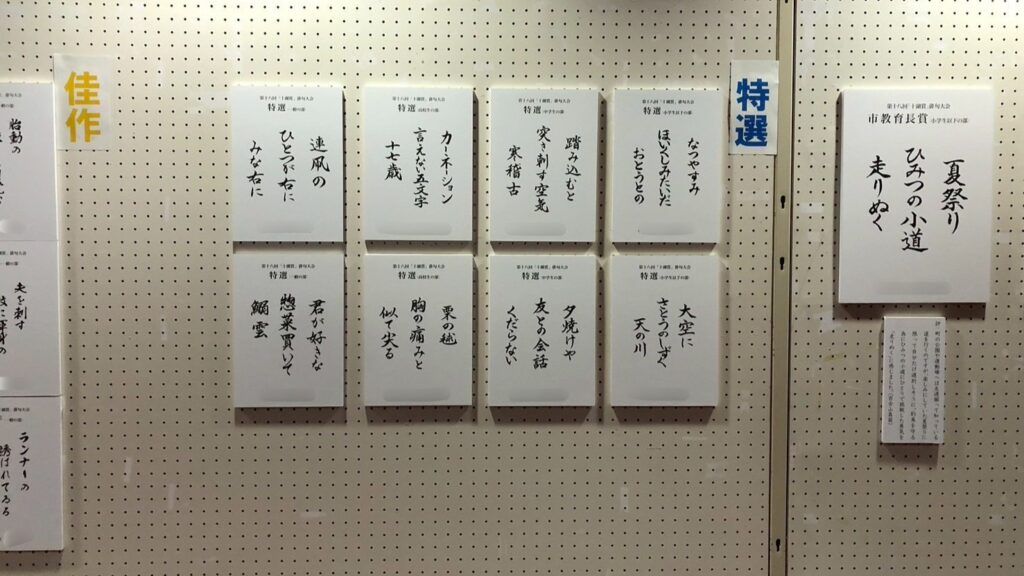 特選
佳作
第十六回「十湖賞」俳句大会
市教育長賞 小学生以下の部
夏祭り
ひみつの小道
走りぬく
第十六回「十湖賞」俳句大会
特選 小学生以下の部
なつやすみ
ほいくしみたいだ
おとうとの
第十六回「十湖賞」俳句大会
特選 中学生の部
踏み込むと
突き刺す空気
寒稽古
第十六回「十湖賞」俳句大会
特選 高校生の部
カーネーション
言えない五文字
十七歳
第十六回「十湖賞」俳句大会
特選 一般の部
連凧の
ひとつが右に
みな右に
第十六回「十湖賞」俳句大会
特選 小学生以下の部
大空に
さとうのしずく
天の川
第十六回「十湖賞」俳句大会
特選 中学生の部
夕焼けや
友との会話
くだらない
第十六回「十湖賞」俳句大会
特選 高校生の部
栗の毬
胸の痛みと
似て尖る
第十六回「十湖賞」俳句大会
特選 一般の部
君が好きな
惣菜買いて
鰯雲
胎動の
夫を刺す
ランナーの